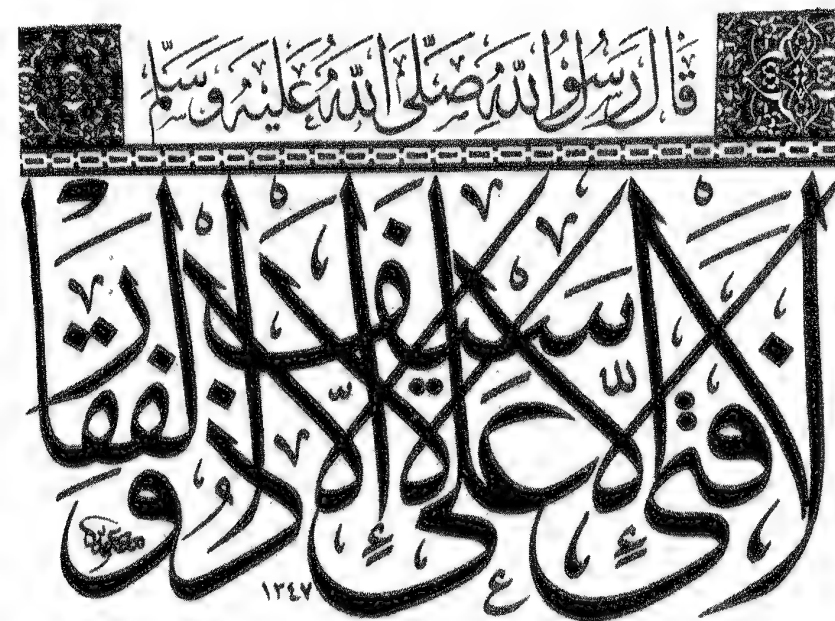 قَالَ رَسُولُ اللهِ صَلَّى اللهُ عَلَيْهِ وَسَلَّم
لا فتى إلا علي لا سيف إلا ذو الفقار
١٣٤٧